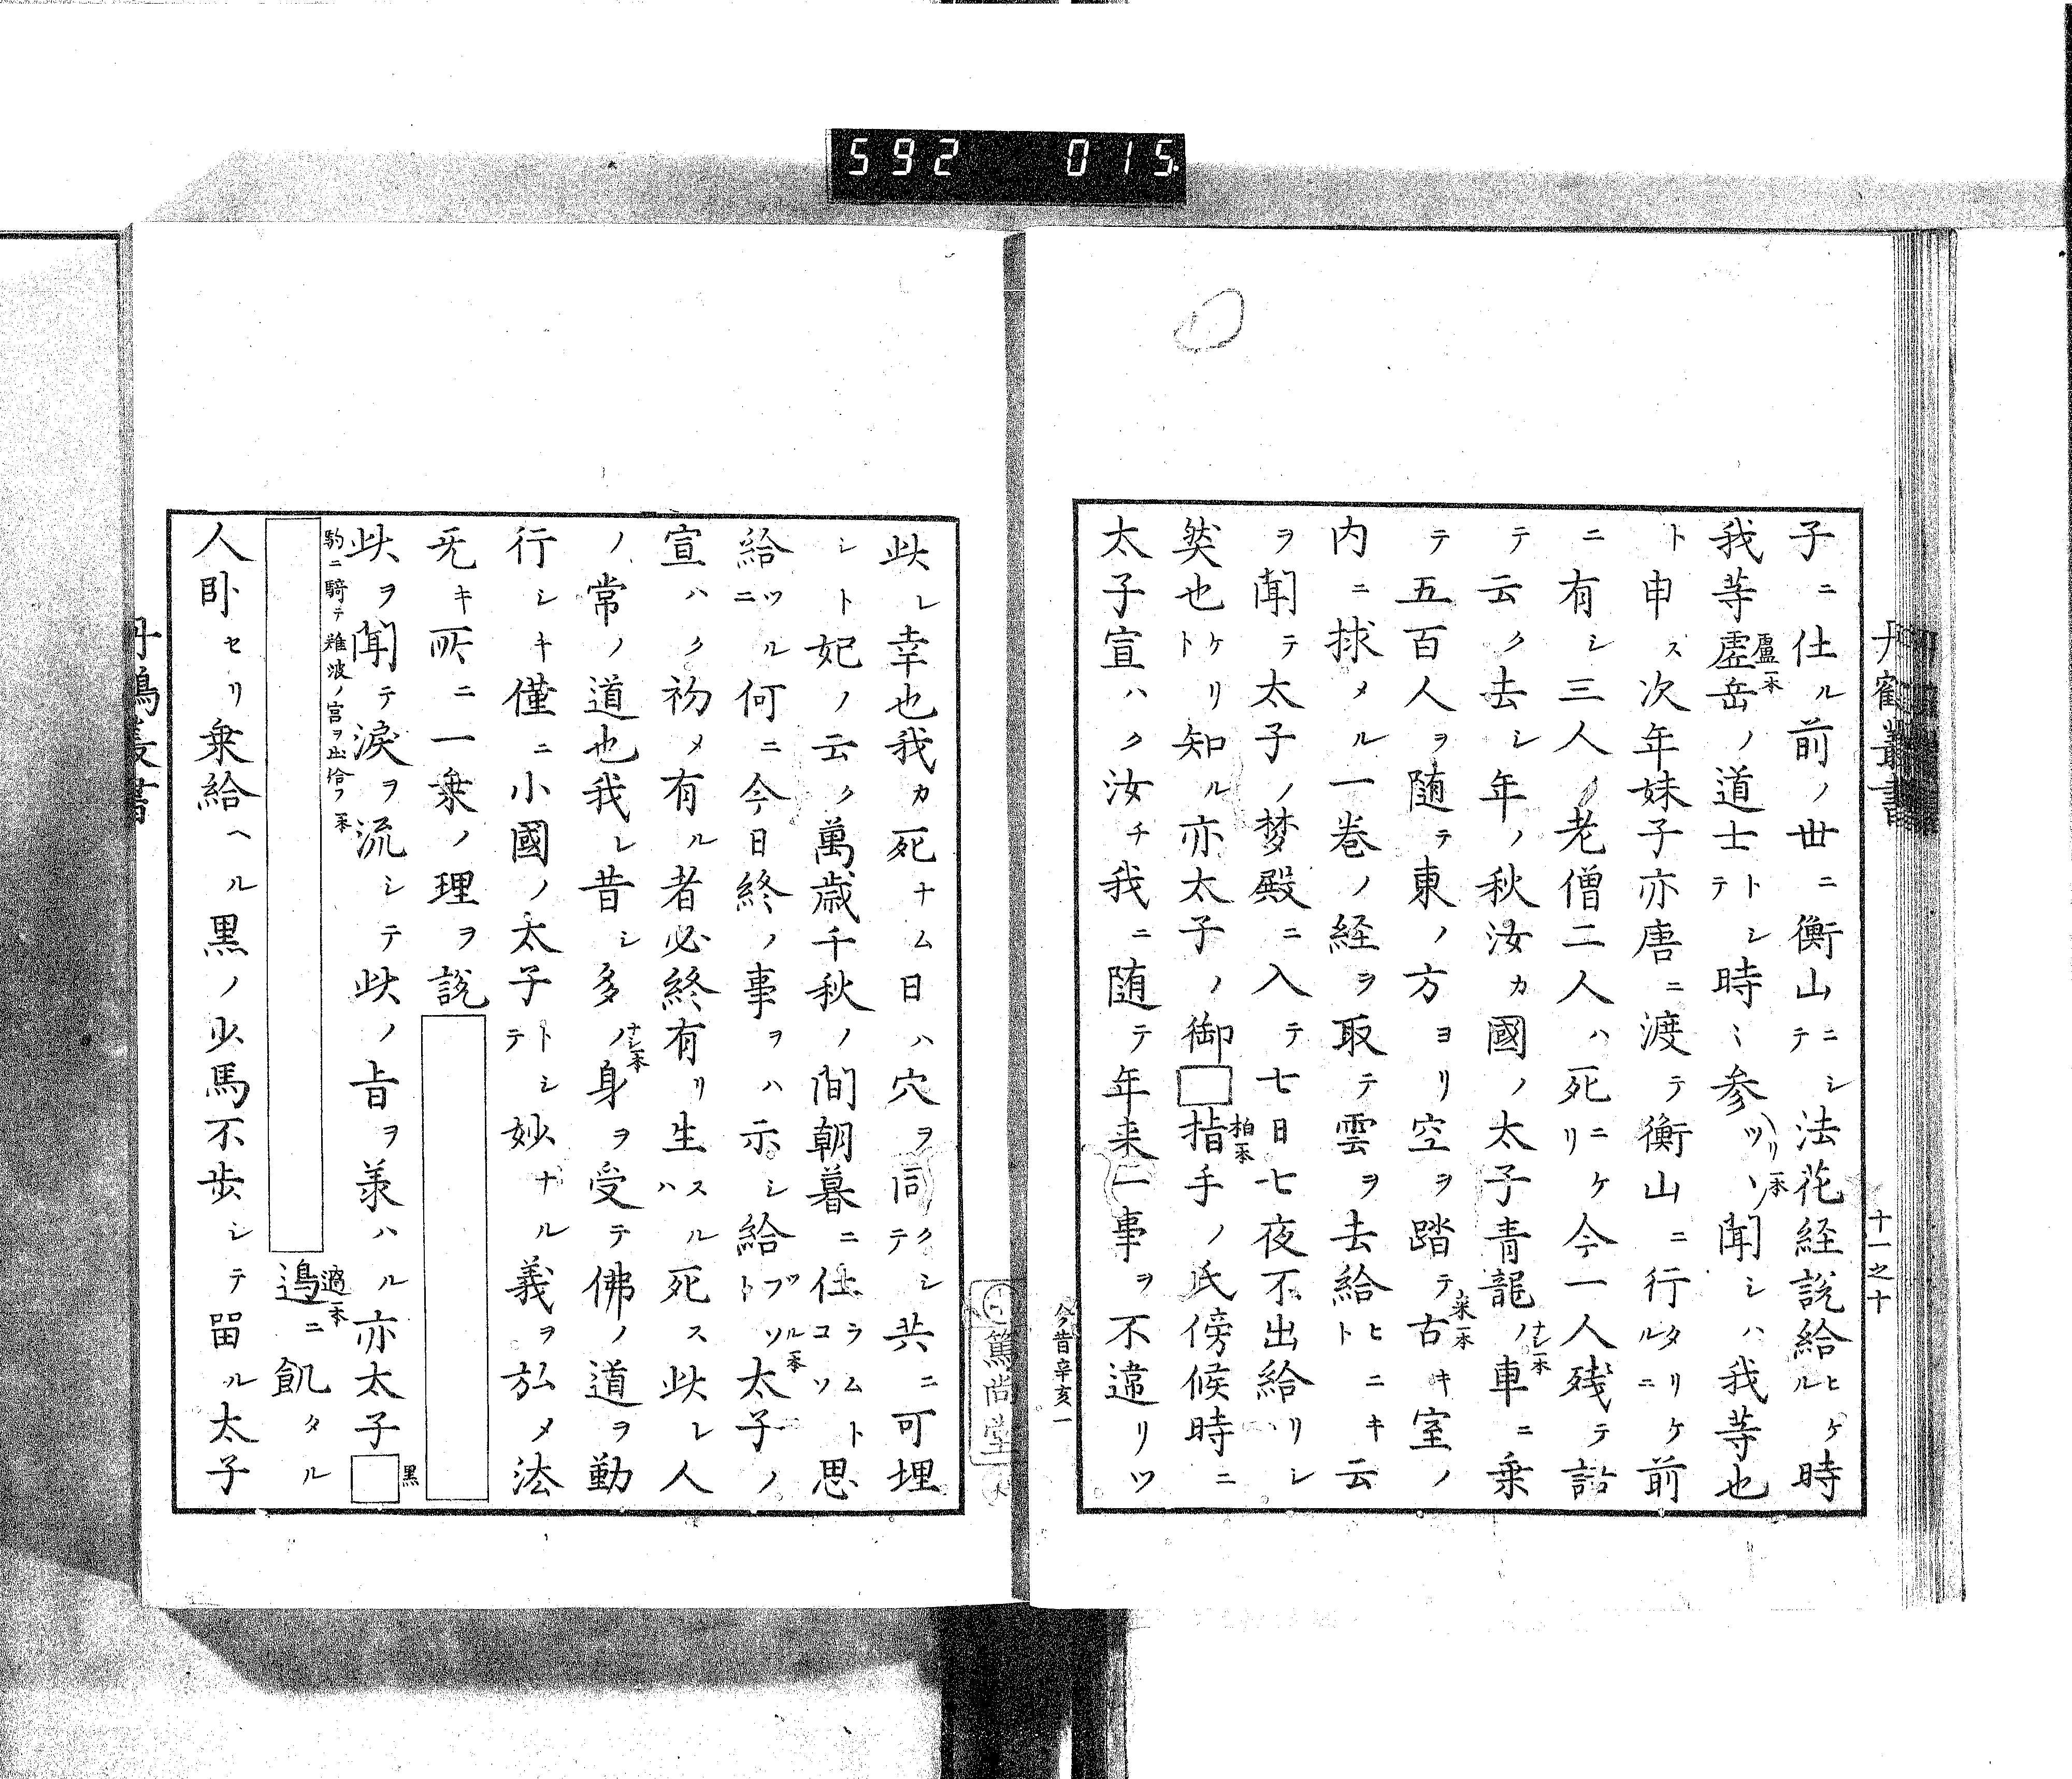 592 015
丹鶴叢書
十一之十
子ニ仕ル前ノ世ニ衡山ニシテ法花経説給ヒケル時
我等虚岳ノ道士トシテ時〻参ツヽ聞シハ我等也
盧一本
リ一本
ト申ス次年妹子亦唐ニ渡テ衡山ニ行タリケルニ前
ニ有シ三人ノ老僧二人ハ死ニケリ今一人残テ語
テ云ク去シ年ノ秋汝カ國ノ太子青龍ノ車ニ乗
ナシ一本
テ五百人ヲ随テ東ノ方ヨリ空ヲ踏テ古キ室ノ
来一本
内ニ捄メル一巻ノ経ヲ取テ雲ヲ去給ヒニキト云
ヲ聞テ太子ノ夢殿ニ入テ七日七夜不出給リシ
然也ケリト知ル亦太子ノ御□指手ノ氏傍候時ニ
柏一本
太子宣ハク汝チ我ニ随テ年来一事ヲ不違リツ
今ノ昔辛亥一
篤尚堂
此レ幸也我カ死ナム日ハ穴ヲ同クシテ共ニ可埋
シト妃ノ云ク萬歳千秋ノ間朝暮ニ仕ラムトコソ思
給ツルニ何ニ今日終ノ事ヲハ示シ給フツソト太子ノ
ル一本
宣ハク初メ有ル者必終有リ生スルハ死ス此レ人
ノ常ノ道也我レ昔シ多ノ身ヲ受テ佛ノ道ヲ勤
ナシ一本
行シキ僅ニ小國ノ太子トシテ妙ナル義ヲ弘メ法
无キ所ニ一乗ノ理ヲ説
此ヲ聞テ涙ヲ流シテ此ノ旨ヲ羕ハル亦太子□
黒
駒ニ騎テ難波ノ宮ヲ出給フ一本
邉ニ飢タル
適一本
人臥セリ乗給ヘル黒ノ少馬不歩シテ留ル太子